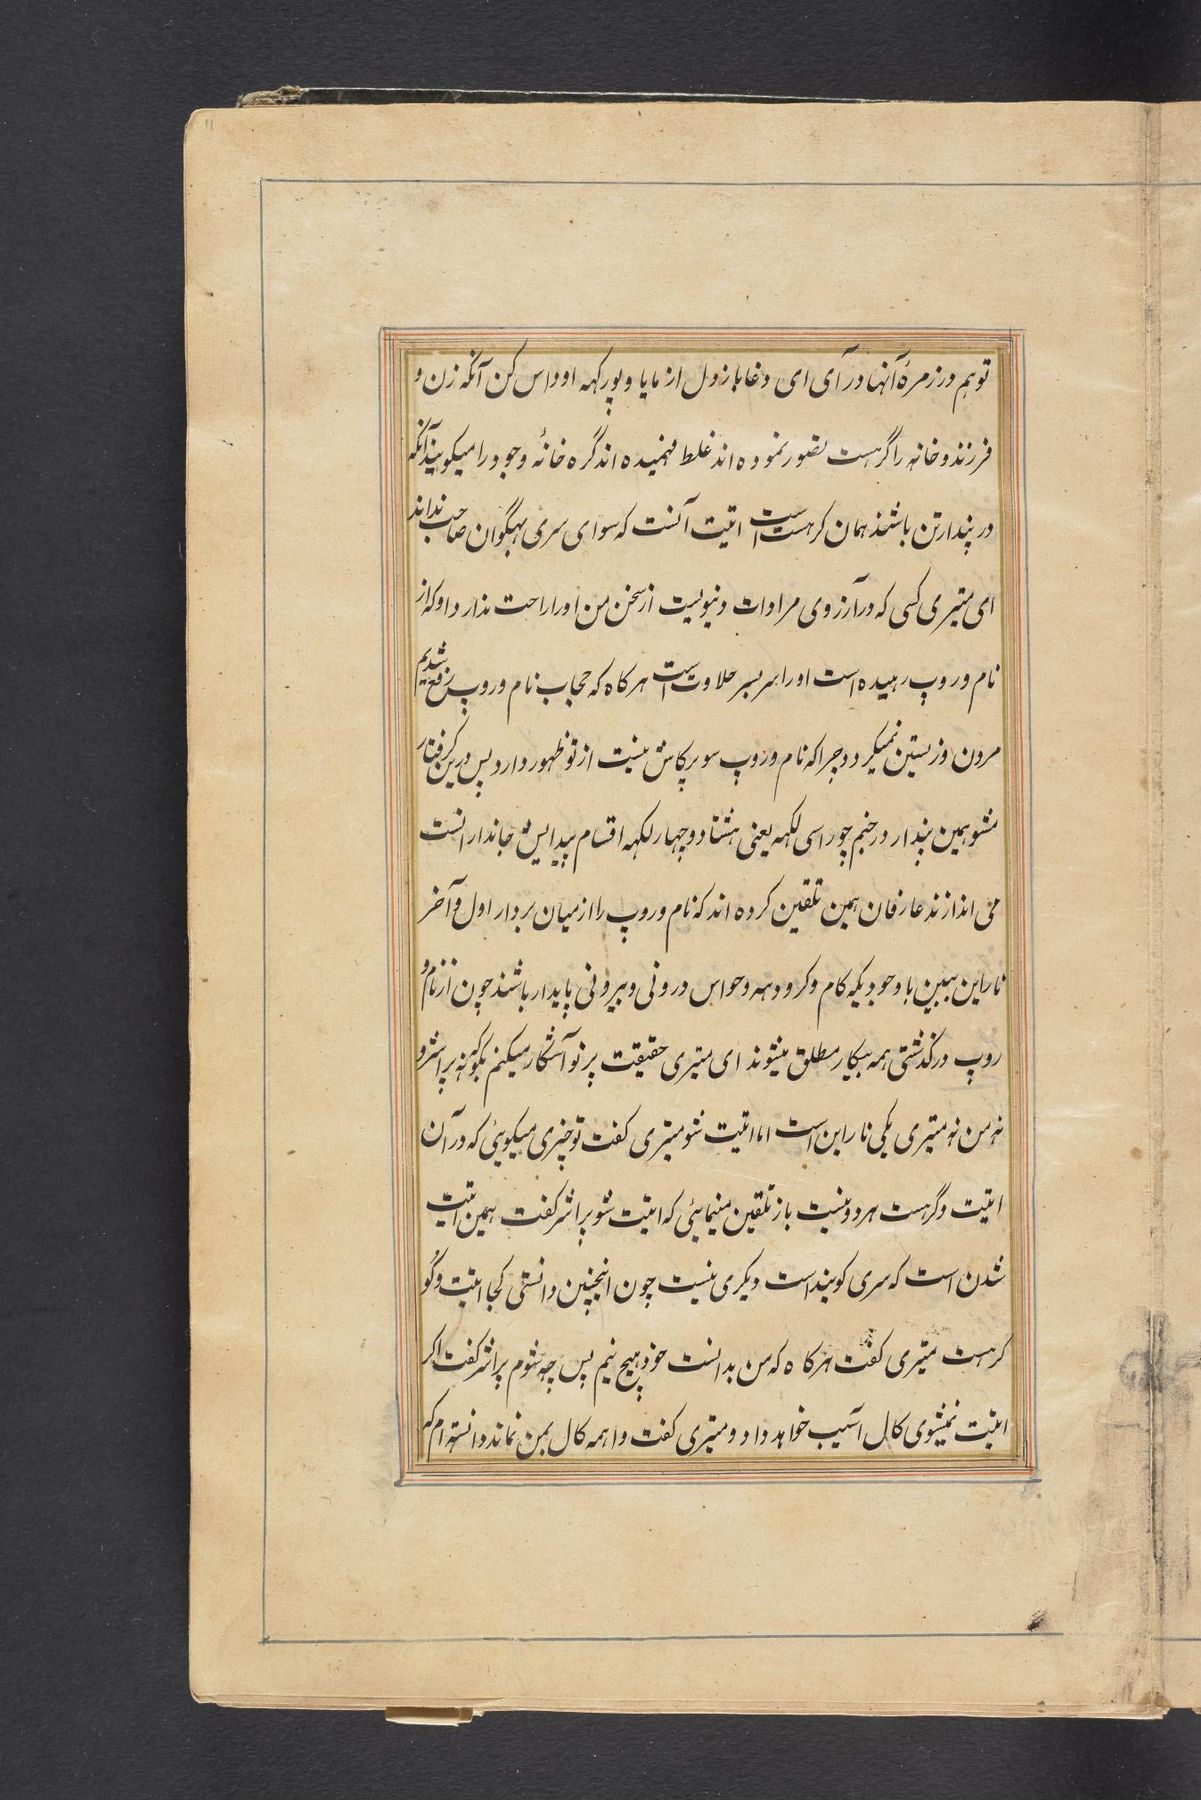 توهم در زمرهٔ آنها در آی ای دغاباز دل از مایا و پورکهه اوداس کن آنکه زن و
فرزند و خانه را گرهست تصور نموده اند غلط فهمیده اند گره خانهٔ وجود را میکویند آنکه
در پندار تن باشند همان گرهست است اتیت آنست که سوای سری بهگوان صاحب نداند
ای میتری کسی که در آرزوی مرادات دنیویست از سخن من او را راحت مدار د او که از
نام و روپ رهیده است او را سر بسر حلاوت است هرکاه که حجاب نام و روپ رفع شد بیم
مردن و زیستن نمیکردد چرا که نام و روپ سوپرکاش نیست از تو ظهور دارد پس درین گرفتار
مشو همین پندار در جنم چوراسی لکهه یعنی هشتاد و چهار لکهه اقسام پیدایش جاندار انست
می اندازند عارفان همین تلقین کرده اند که نام و روپ را از میان بردار اول و آخر
ناراین ببین با وجودیکه کام و کرودهه و حواس درونی و بیرونی پایدار باشند چون از نام و
روپ درگذشتی همه بیکار مطلق میشوند ای میتری حقیقت بر تو آشکار میکنم بگو که نه پراشر و
نه من نه میتری یکی ناراین است اما اتیت شو میتری کفت تو چیزی میکویی که در آن
اتیت و گرهست هر دو نیست باز تلقین مینمایئی که اتیت شو پراشر کفت همین اتیت
شدن است که سری کوبند است دیکری نیست چون اینچنین دانستی کجا اتیت و کو
گرهست میتری کفت هرکاه که من بدانست خود هیچ نیم پس چه شوم پراشر کفت اکر
اتیت نمیشوی کال آسیب خواهد داد و میتری کفت واهمه کال بمن نماند دانسته ام که